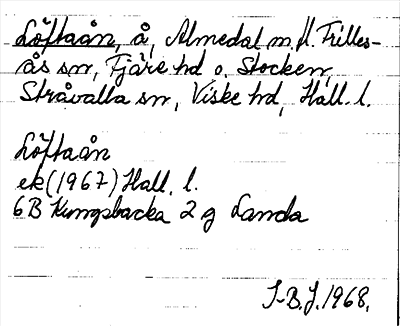 Löftaån, å, Almedal m.fl. Frilles-
ås sn, Fjäre hd o. Stocken,
Stråvalla sn, Viske hd, Hall. l.
Löftaån
ek (1967) Hall. l.
6B Kungsbacka 2 g Landa
I-B.J. 1968.